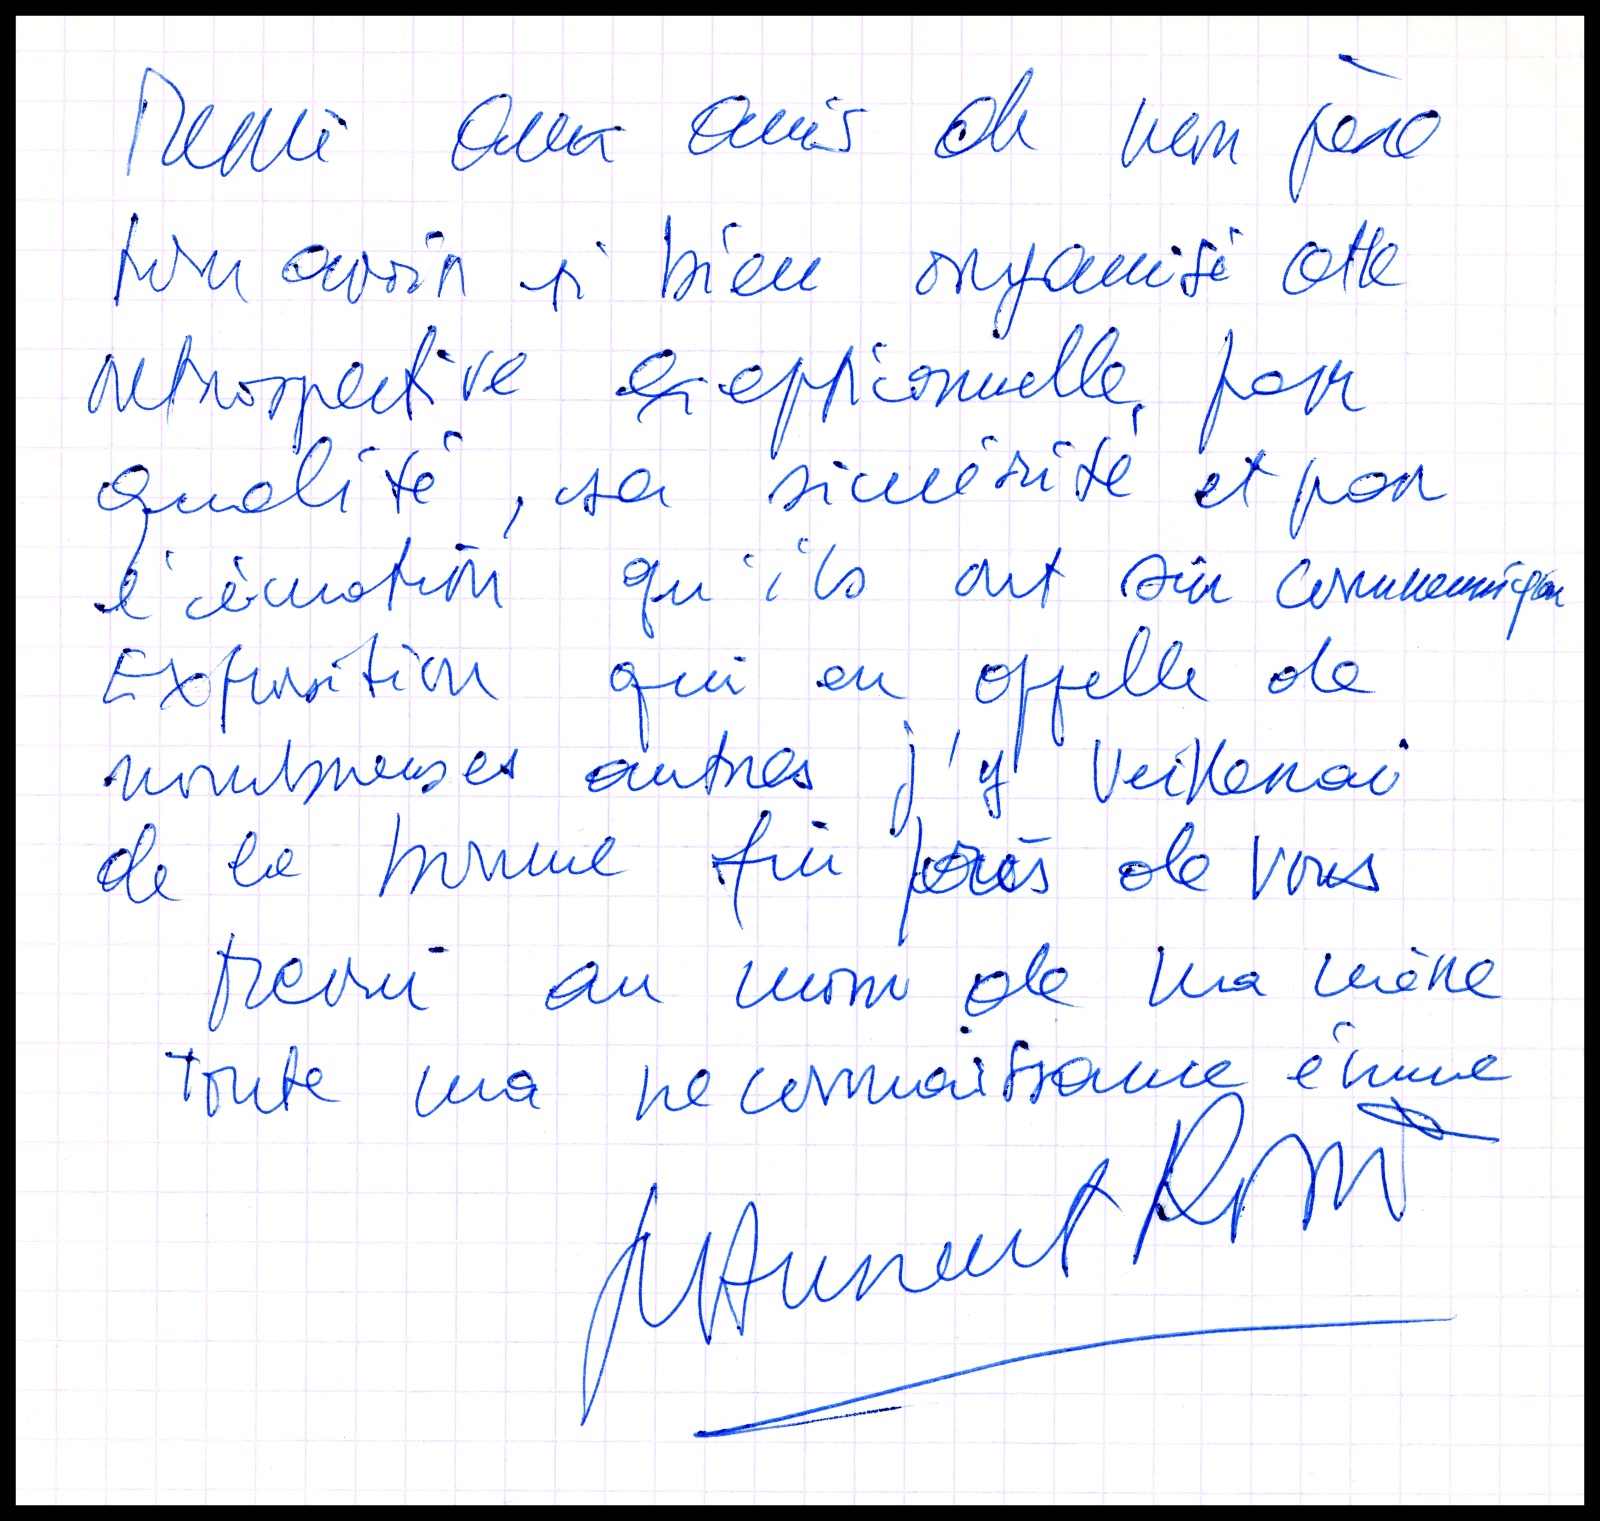 Merci aux amis de mon père
d'en avoir si bien organisé cette
retrospective exceptionnelle, par
qualité, sa sincérité et par
l'émotion qu'ils ont su communiquer
Exposition qui en appelle de
nombreuses autres j'y veillerai
de la bonne fin près de vous
Merci au nom de ma mère
toute ma reconnaissance émue